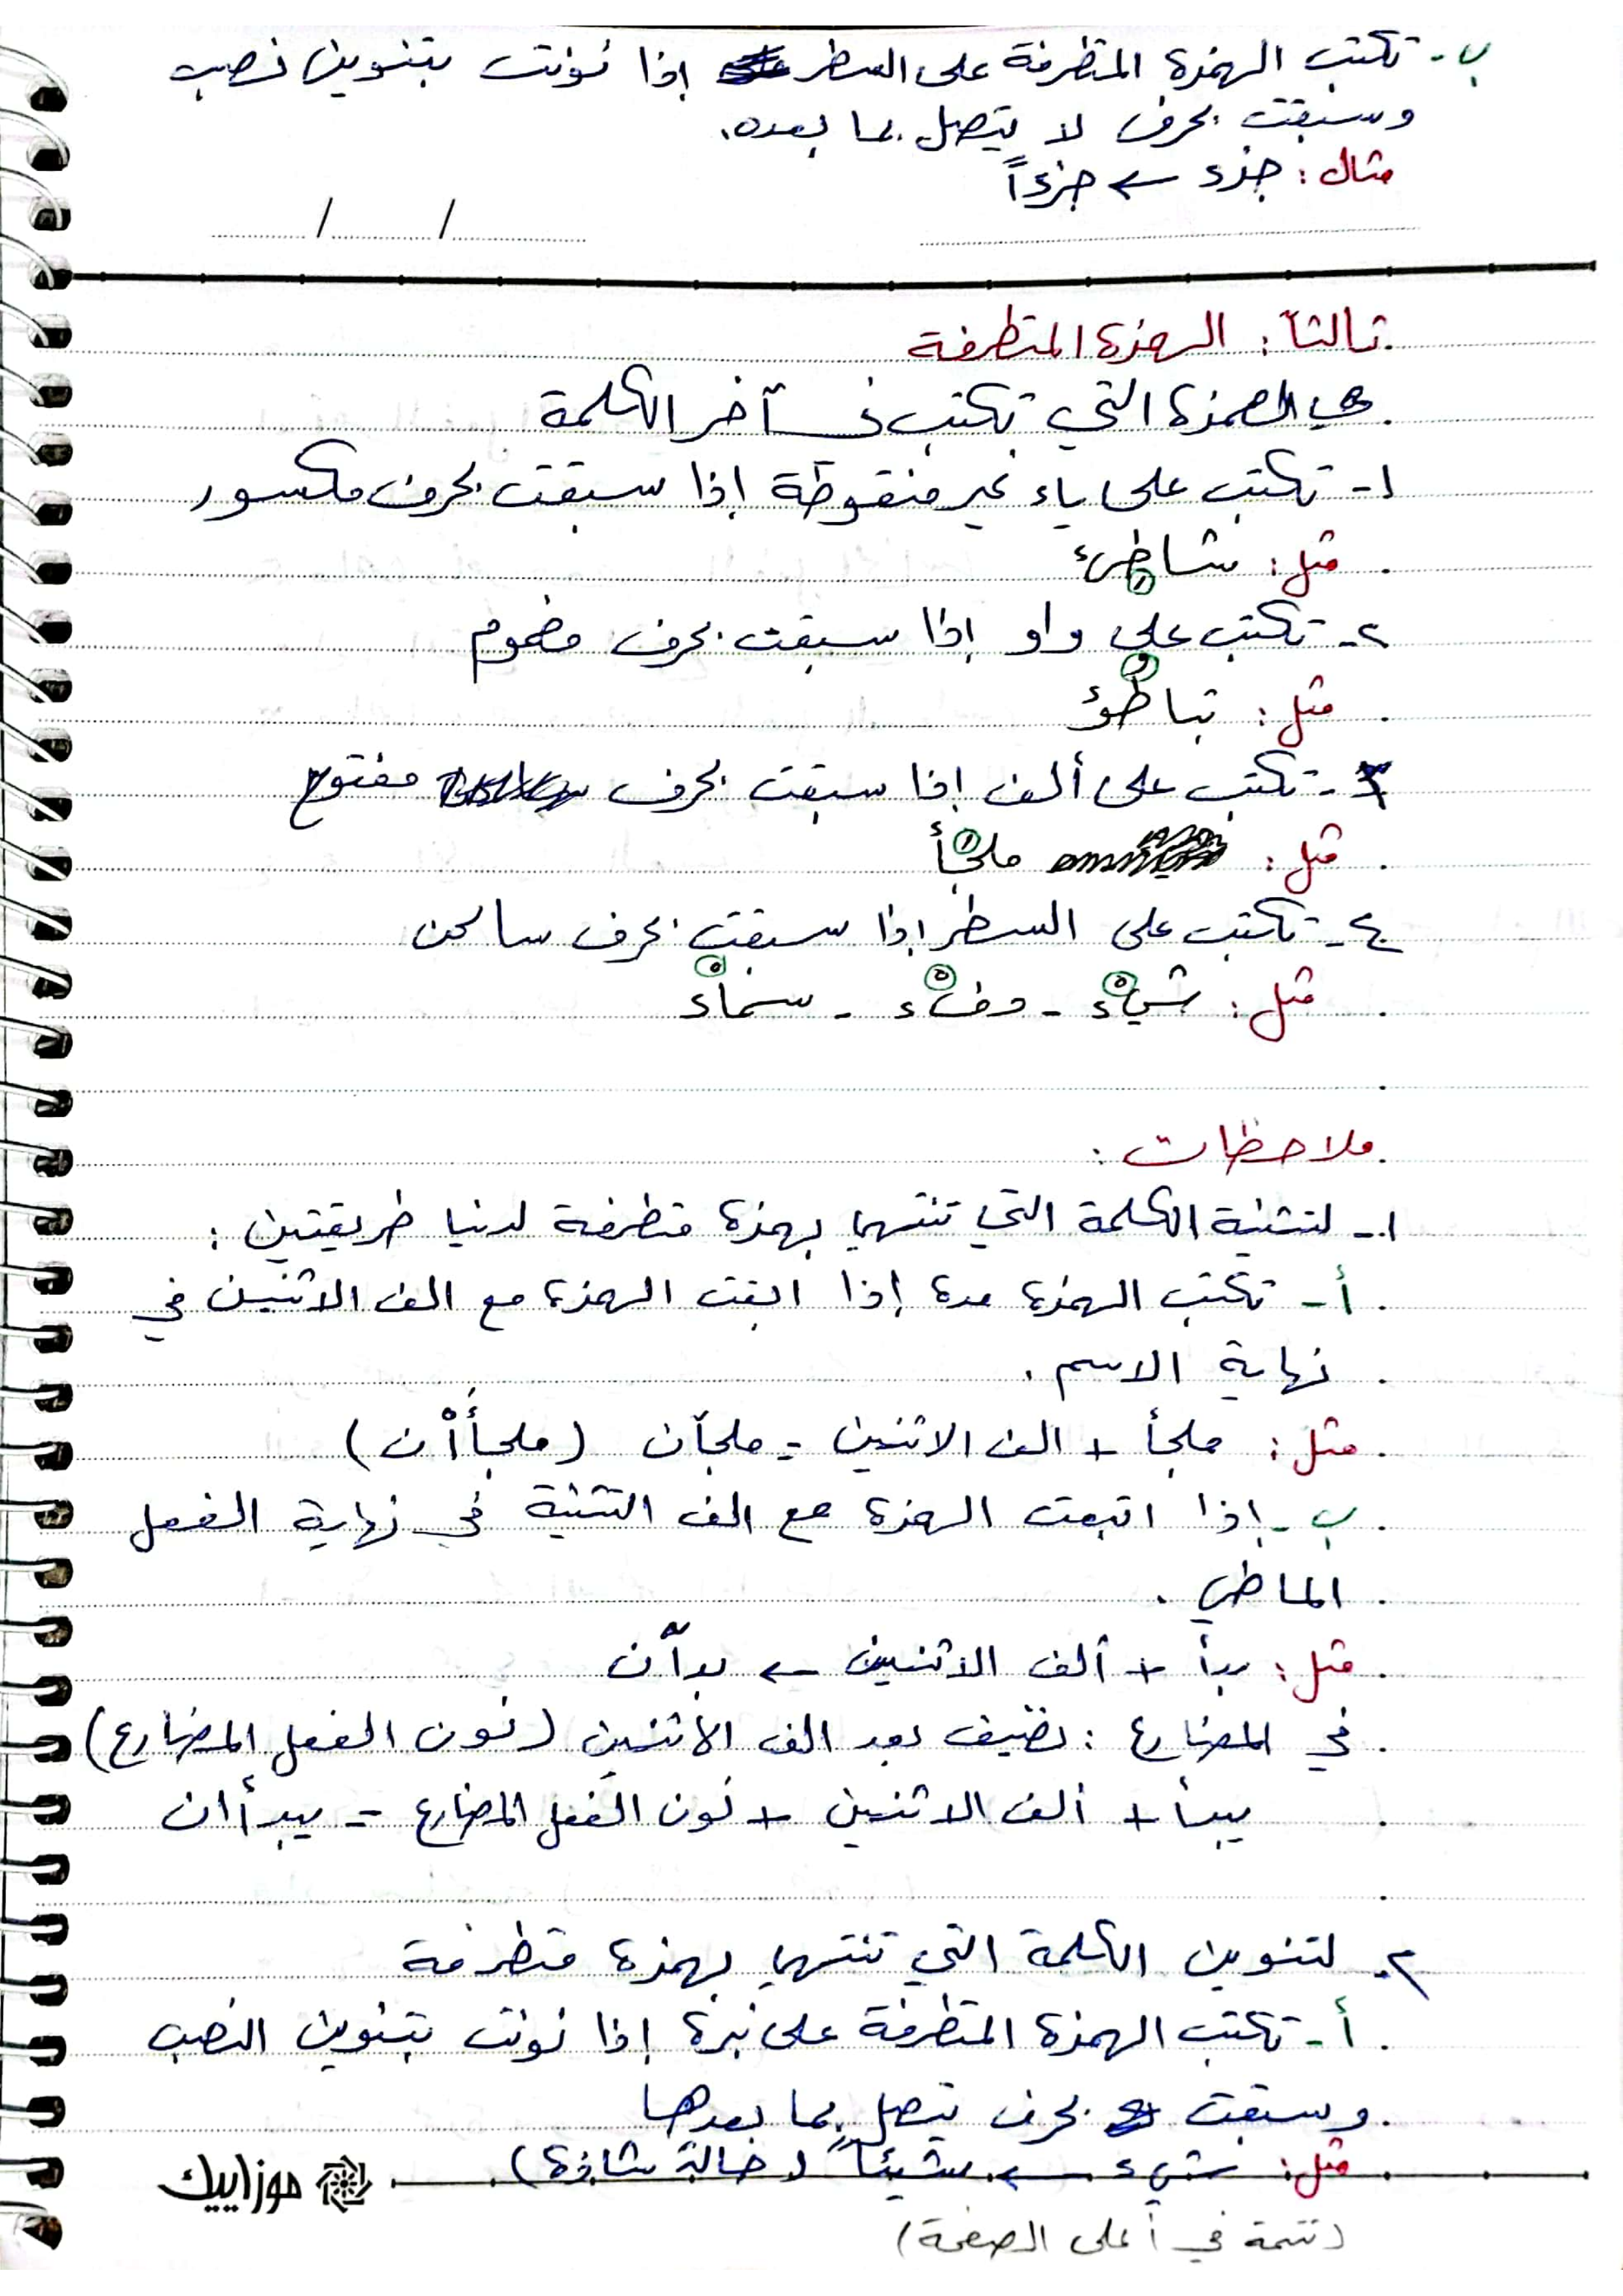 ب- تكتب الهمزة المتطرفة على السطر إذا نونت بتنوين نصب
وسبقت بحرف لا يتصل بما بعده.
مثال: جزء ← جزءاً
ثالثاً: الهمزة المتطرفة
هي الهمزة التي تكتب في آخر الكلمة
١- تكتب على ياء غير منقوطة إذا سبقت بحرف مكسور
مثل: شاطِئ
٢- تكتب على واو إذا سبقت بحرف مضموم
مثل: تباطُؤ
٣- تكتب على ألف إذا سبقت بحرف مفتوح
مثل: ملجَأ
٤- تكتب على السطر إذا سبقت بحرف ساكن
مثل: شيْء - دفْء - سماْء
ملاحظات:
١- لتثنية الكلمة التي تنتهي بهمزة متطرفة لدينا طريقتين:
أ- تكتب الهمزة مدة إذا اتبعت الهمزة مع الف الاثنين في
نهاية الاسم.
مثل: ملجأ + الف الاثنين = ملجآن (ملجأَاْن)
ب- إذا اتبعت الهمزة مع الف التثنية في نهاية الفعل
الماضي.
مثل: بدأ + ألف الاثنين ← بدآن
في المضارع: نضيف بعد الف الاثنين (نون الفعل المضارع)
يبدأ + ألف الاثنين + نون الفعل المضارع = يبدأان
٢- لتنوين الكلمة التي تنتهي بهمزة متطرفة
أ- تكتب الهمزة المتطرفة على نبرة إذا نونت بتنوين النصب
وسبقت بحرف يتصل بما بعدها
مثل: شيء ← شيئاً (حالة شاذة)
موزاييك
(تتمة في أعلى الصفحة)